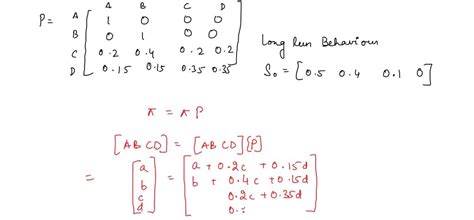 A B C D
P = A 1 0 0 0
B 0 1 0 0
C 0.2 0.4 0.2 0.2
D 0.15 0.15 0.35 0.35
Long Run Behaviour
S₀ = [0.5 0.4 0.1 0]
π = π P
[AB CD] = [AB CD] [P]
= [a b c d] = [a + 0.2c + 0.15d
b + 0.4c + 0.15d
0.2c + 0.35d
0.